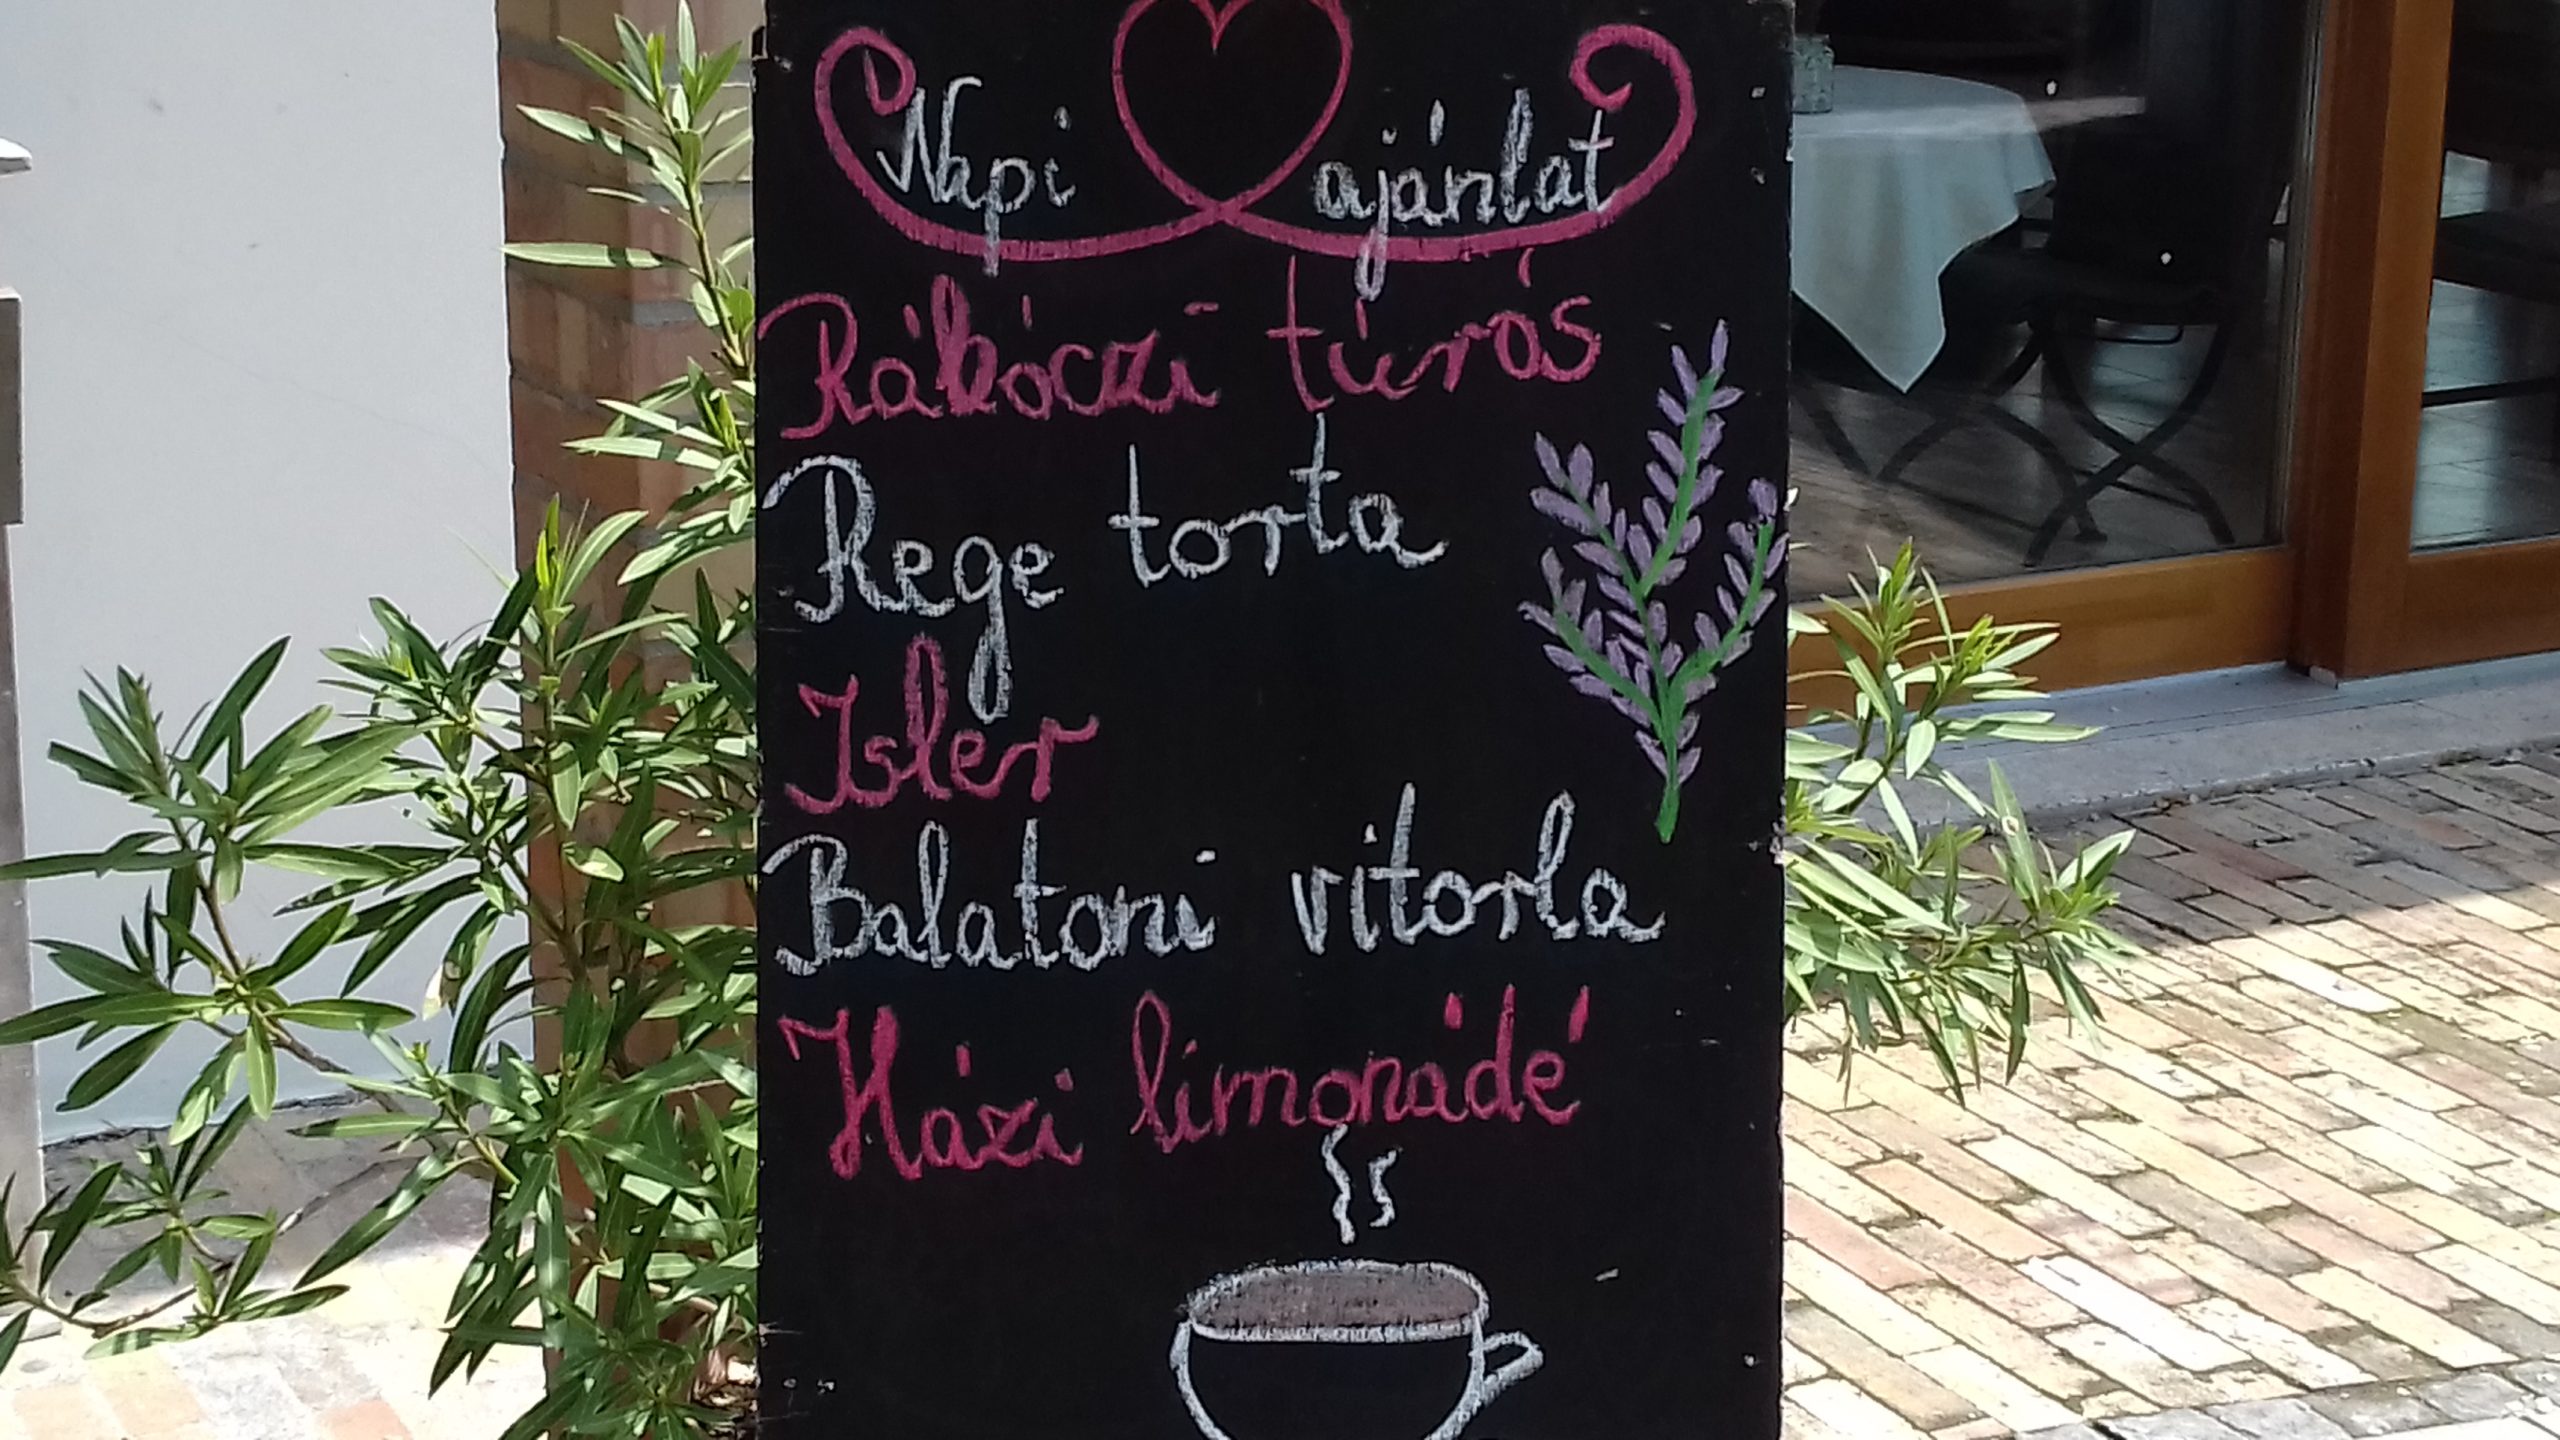 Napi ajánlat
Rákóczi túrós
Rege torta
Isler
Balatoni vitorla
Házi limonádé